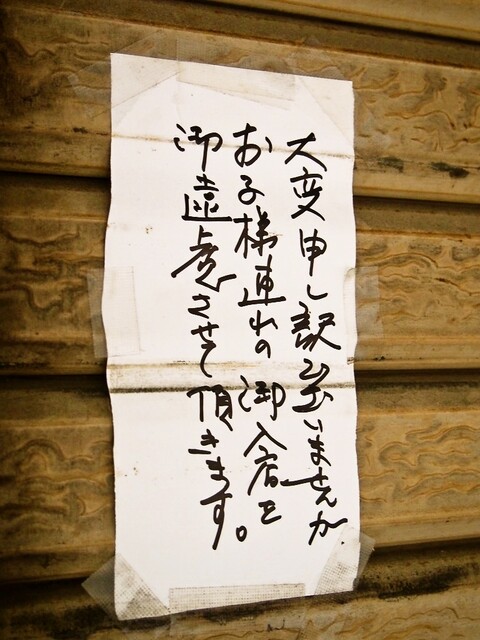 大変申し訳ございませんが
お子様連れの御入店を
御遠慮させて頂きます。